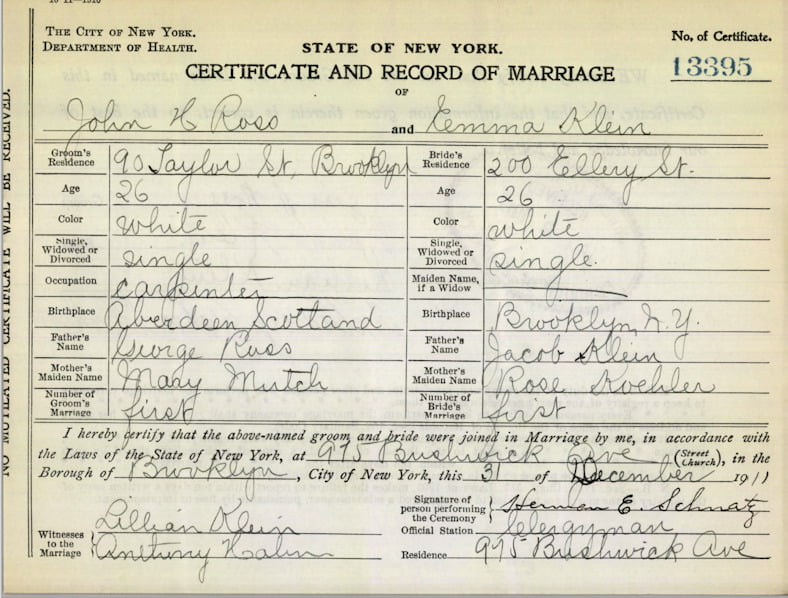 THE CITY OF NEW YORK.
DEPARTMENT OF HEALTH.
STATE OF NEW YORK.
No. of Certificate.
13395
CERTIFICATE AND RECORD OF MARRIAGE
OF
John H Ross and Emma Klein
Groom's Residence 90 Taylor St, Brooklyn Bride's Residence 200 Ellery St.
Age 26 Age 26
Color white Color white
Single, Widowed or Divorced single Single, Widowed or Divorced single.
Occupation carpenter Maiden Name, if a Widow
Birthplace Aberdeen Scotland Birthplace Brooklyn, N.Y.
Father's Name George Ross Father's Name Jacob Klein
Mother's Maiden Name Mary Mutch Mother's Maiden Name Rose Koehler
Number of Groom's Marriage first Number of Bride's Marriage first
I hereby certify that the above-named groom and bride were joined in Marriage by me, in accordance with
the Laws of the State of New York, at 975 Bushwick Ave (Street Church), in the
Borough of Brooklyn, City of New York, this 31 of December 1911
Signature of person performing the Ceremony Herman E. Schnatz
Official Station Clergyman
Residence 975 Bushwick Ave
Witnesses to the Marriage Lillian Klein
Anthony Hahn
NO MUTILATED CERTIFICATE WILL BE RECEIVED.